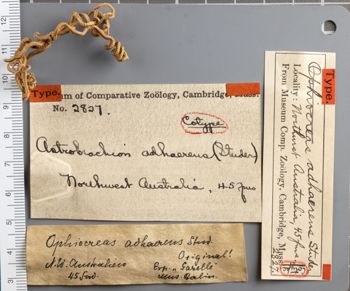 Type.
um of Comparative Zoölogy, Cambridge, Mass.
No. 2827.
Cotype
Astrobrachion adhaerens (Studer)
Northwest Australia, 45 fms
Ophiocreas adhaerens Stud.
Original!
N.W. Australien
45 fad.
Exp. Gazelle
Mus. Berlin.
Type.
Ophiocreas adhaerens Studer
Locality: Northwest Australia, 45 fms
From Museum Comp. Zoology, Cambridge, Mass.
2827